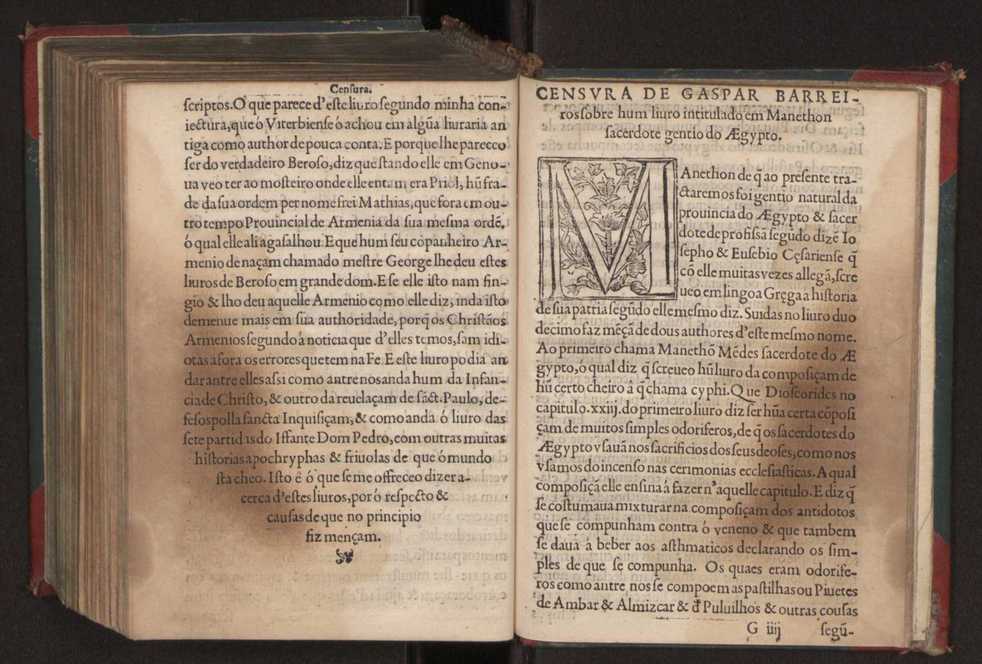 Censura.
scriptos. O que parece d'este liuro segundo minha con-
iectura, que ó Viterbiense ó achou em algũa liuraria an
tiga como author de pouca conta. E porque lhe pareceo
ser do verdadeiro Beroso, diz que stando elle em Geno-
ua veo ter ao mosteiro onde elle entam era Priol, hũ fra-
de da sua ordem per nome frei Mathias, que fora em ou-
tro tempo Prouincial de Armenia da sua mesma ordẽ,
ó qual elle ali agasalhou. E que hum seu cõpanheiro Ar-
menio de naçam chamado mestre George lhe deu estes
liuros de Beroso em grande dom. E se elle isto nam fin-
gio & lho deu aquelle Armenio como elle diz, inda isto
demenue mais em sua authoridade, porq̃ os Christãos
Armenios segundo á noticia que d'elles temos, sam idi-
otas afora os errores que tem na Fe. E este liuro podia an
dar antre elles assi como antre nos anda hum da Infan-
cia de Christo, & outro da reuelaçam de sãct. Paulo, de-
fesos polla sancta Inquisiçam, & como anda ó liuro das
sete partidas do Iffante Dom Pedro, com outras muitas
historias apochryphas & friuolas de que ó mundo
sta cheo. Isto é ó que se me offreceo dizer a-
cerca d'estes liuros, por ó respecto &
causas de que no principio
fiz mençam.
CENSVRA DE GASPAR BARREI-
ros sobre hum liuro intitulado em Manethon
sacerdote gentio do Ægypto.
MAnethon de q̃ ao presente tra-
ctaremos foi gentio natural da
prouincia do Ægypto & sacer
dote de profissã segũdo dizẽ Io
sepho & Eusebio Cęsariense q̃
cõ elle muitas vezes allegã, scre
ueo em lingoa Gręga a historia
de sua patria segũdo elle mesmo diz. Suidas no liuro duo
decimo faz mẽçã de dous authores d'este mesmo nome.
Ao primeiro chama Manethõ Mẽdes sacerdote do Æ
gypto, ó qual diz q̃ screueo hũ liuro da composiçam de
hũ certo cheiro â q̃ chama cyphi. Que Dioscorides no
capitulo. xxiij. do primeiro liuro diz ser hũa certa cõposi
çam de muitos simples odoriferos, de q̃ os sacerdotes do
Ægypto vsauã nos sacrificios dos seus deoses, como nos
vsamos do incenso nas cerimonias ecclesiasticas. A qual
composiçã elle ensina á fazer n'aquelle capitulo. E diz q̃
se costumaua mixturar na composiçam dos antidotos
que se compunham contra ó veneno & que tambem
se daua á beber aos asthmaticos declarando os sim-
ples de que se compunha. Os quaes eram odorife-
ros como antre nos se compoem as pastilhas ou Piuetes
de Ambar & Almizcar & d̃ Puluilhos & outras cousas
G iiij segũ-